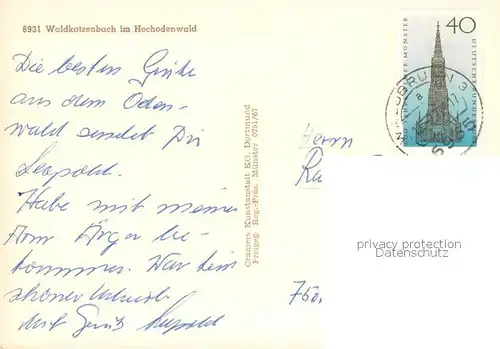 6931 Waldkatzenbach im Hochodenwald
Die besten Grüße
aus dem Oden-
wald sendet Dir
Leopold.
Habe mit meinem
Arm Ärger be-
kommen. War kein
schöner Urlaub
Mit Gruß Leopold
Cramers Kunstanstalt KG, Dortmund
Freigeg. Reg.-Präs. Münster 0791/67
40
ER MÜNSTER
DEUTSCHE BUND
Herrn
750
privacy protection
Datenschutz